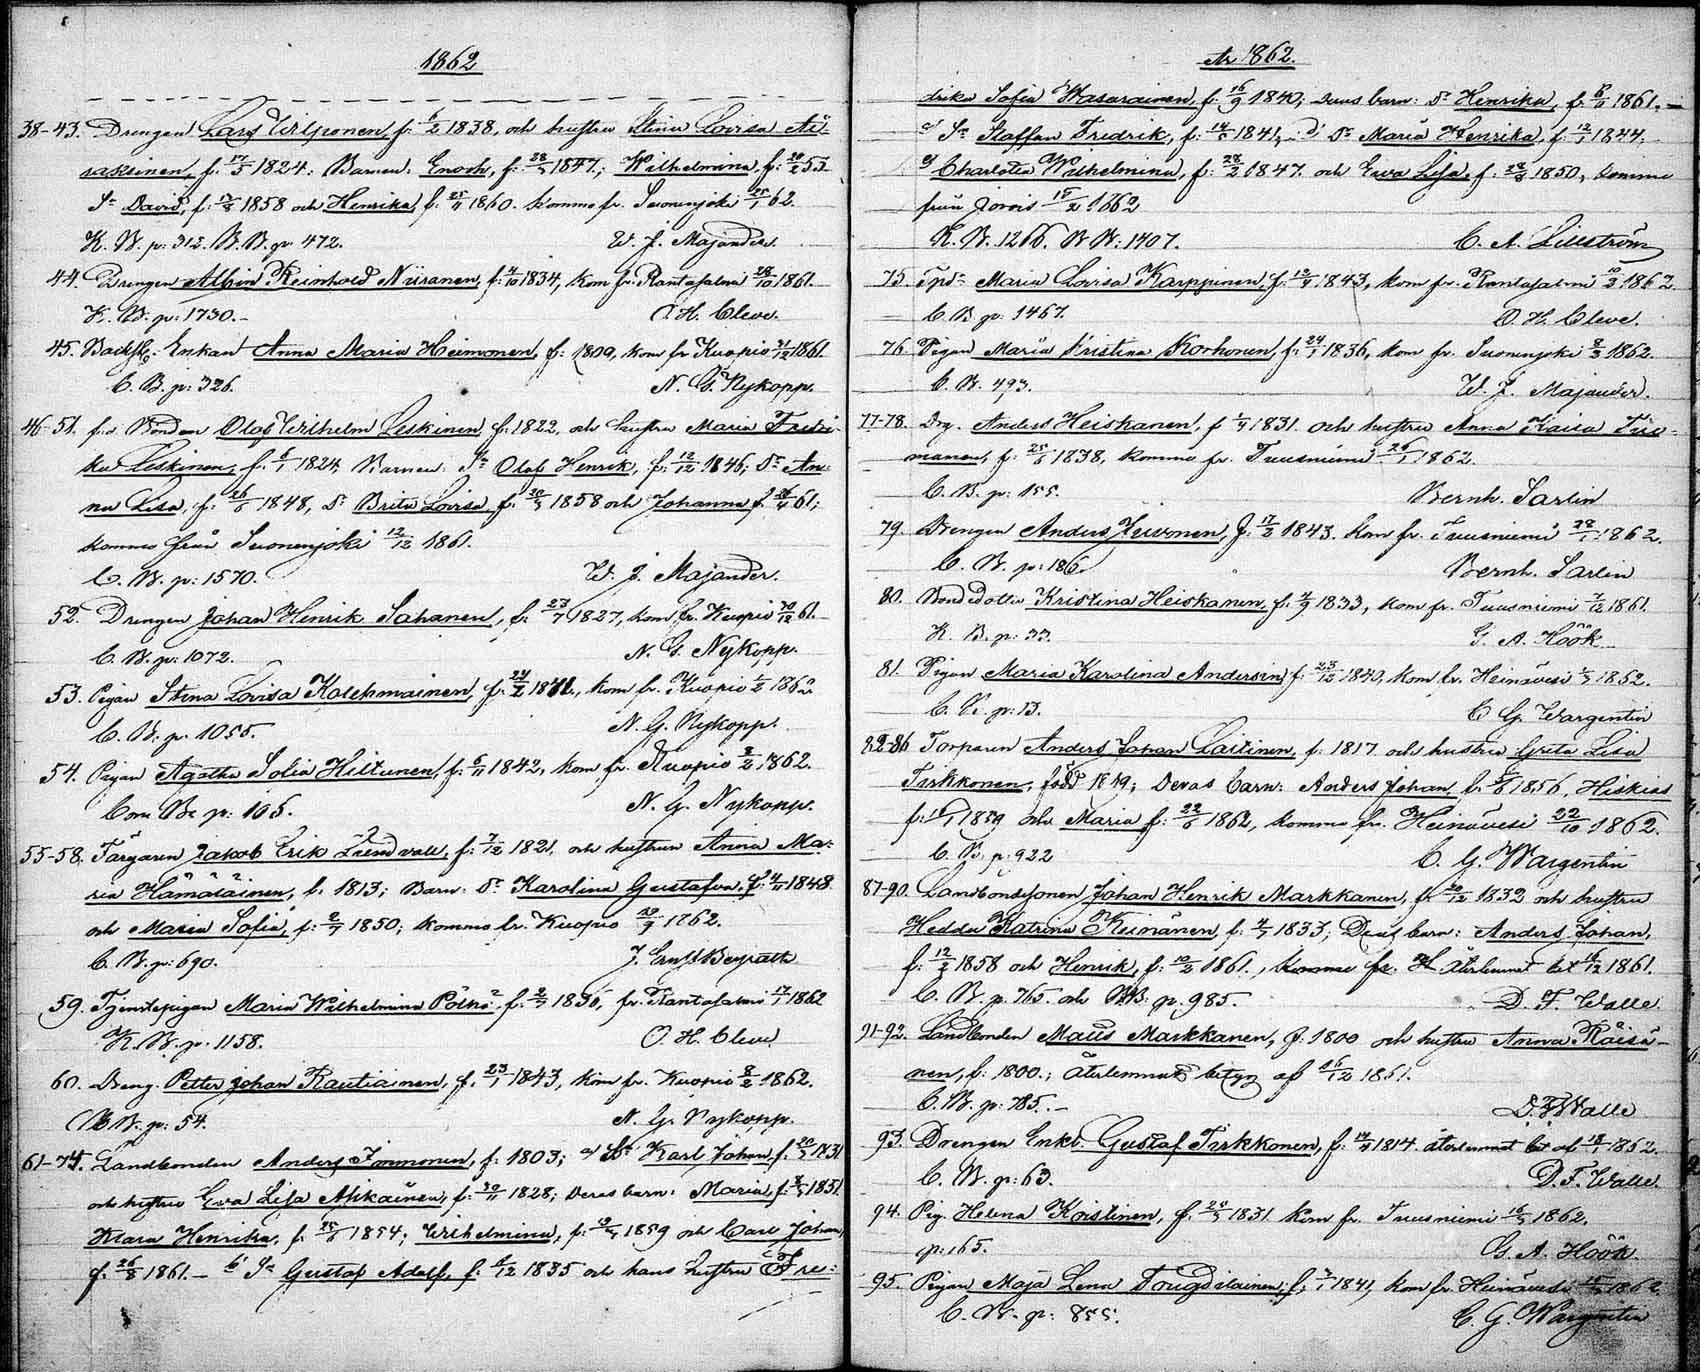 1862
38-43. Drengen Lars Wilponen, f. 6/2 1838, och hustru Stina Lovisa
saksinen, f. 17/5 1824. Barnen: Enoch, f. 28/5 1847; Wilhelmina, f. 20/2 53
Sn David, f. 1858 och Henrika, f. 25/11 1860. komma fr. Suonenjoki 25/1 62.
K. B. p: 312. B. B. p: 472. W. J. Majander.
44. Drengen Albin Reinhold Niiranen, f. 1834, kom fr. Rantasalmi 28/10 1861.
K. B. p: 1730. O. H. Cleve.
45. Enkan Anna Maria Heimonen, f: 1809, kom fr Kuopio 1861.
C. B. p: 326. N. G. Nykopp.
46-51. f.d. Bonden Olof Wilhelm Leskinen, f. 1822, och hustru Maria Fredri-
ka Leskinen, f. 1824. Barnen: Sn Olof Henrik, f. 12/12 1846; Dr An-
na Lisa, f: 26/6 1848, Dr Brita Lovisa f. 1858 och Johanna f. 61;
komma från Suonenjoki 12/12 1861.
C. B. p: 1570. W. J. Majander.
52. Drengen Johan Henrik Sahanen, f. 23/7 1827, kom fr. Kuopio 61.
C. B. p: 1072. N. G. Nykopp.
53. Pigan Stina Lovisa Kolehmainen, f. kom fr. Kuopio 1862
C. B. p. 1055. N. G. Nykopp.
54. Pigan Agatha Sofia Hiltunen, f: 6/11 1842, kom fr. Kuopio 1862.
Com. B. p: 105. N. G. Nykopp.
55-58. Färgaren Jakob Erik Lindvall, f: 7/12 1821, och hustrun Anna Ma-
ria Hämäläinen, f. 1813; Barn: Dr Karolina Gustafva, f. 1848
och Maria Sofia, f: 1850; komma fr. Kuopio 1862.
C. B. p: 690. J. Ernst Beyrath
59. Tjenstepigan Maria Wilhelmina Pölkö, f: 1836, fr. Rantasalmi 17/1 1862
K. B. p. 1158. O. H. Cleve
60. Dreng. Petter Johan Rautiainen, f. 23/1 1843, kom fr. Kuopio 8/2 1862.
B. p: 54. N. G. Nykopp.
61-74. Landbonden Anders Immonen, f: 1803; a) Sn Karl Johan, f. 1831
och hustru Eva Lisa Asikainen, f: 30/11 1828; deras barn: Maria, f: 1851.
Klara Henrika, f: 1854; Wilhelmina, f: 1859 och Carl Johan,
f. 26/8 1861. b) Sn Gustaf Adolf, f: 6/12 1835 och hans hustru Fre-
År 1862.
drika Sofia Wasarainen, f: 16/9 1840; deras barn: Dr Henrika, f. 1861.
c) Sn Staffan Fredrik, f: 1841; d) Dr Maria Henrika, f. 12/1 1844;
e) Charlotta Wilhelmina, f: 28/2 1847. och Eva Lisa, f. 1850, komma
från Jorois 1862
K. B. 1266. B. B: 1407. C. A. Lillström
75. Maria Lovisa Karppinen, f: 1843, kom fr. Rantasalmi 1862
C. B. p: 1467. O. H. Cleve.
76. Pigan Maria Kristina Korhonen, f: 24/1 1836, kom fr. Suonenjoki 1862.
C. B. 493. W. J. Majander.
77-78. Drg. Anders Heiskanen, f 1831. och hustru Anna Kaisa
manen, f: 25/6 1838, komma fr. Tuusniemi 26/1 1862.
C. B. p: 155. Bernh. Sarlin
79. Drengen Anders Juvonen, f: 17/2 1843. kom fr. Tuusniemi 28/1 1862.
C. B. p: 186. Bernh. Sarlin
80. Bondedottr Kristina Heiskanen, f. 1833, kom fr. Tuusniemi 7/12 1861.
K. B. p: 33. G. A. Höök
81. Pigan Maria Karolina Andersin, f: 23/12 1840, kom fr. Heinävesi 1862.
C. B. p: 13. C. G. Wargentin
82-86 Torparen Anders Johan Laitinen, f. 1817 och hustru Greta Lisa
Tirkkonen, född 1819; deras barn: Anders Johan, f. 1856, Hiskias
f: 1859 och Maria f: 22/6 1862, komma fr. Heinävesi 22/10 1862.
C. B. p: 922 C. G. Wargentin
87-90. Landbondesonen Johan Henrik Markkanen, f. 1832 och hustru
Hedda Katrina Keinänen, f. 1833; Deras barn: Anders Johan,
f. 12/2 1858 och Henrik, f. 10/2 1861., fr. H återlemnat bet 16/12 1861.
C. B. p. 765. och BB. p. 985. D. F. Walle.
91-92. Landbonden Mats Markkanen, f. 1800 och hustru Anna Räisä-
nen, f: 1800.; återlemnat betyg af 16/12 1861.
C. B. p: 785. D. F. Walle
93. Drengen Enkl. Gustaf Tirkkonen, f: 1814. återlemnat bet af 1862.
C. B. p: 63. D. F. Walle.
94. Pig. Helena Koistinen, f. 1831 kom fr. Tuusniemi 1862.
p: 165. G. A. Höök.
95. Pigan Maja Lena f. 1841, kom fr. Heinävesi 1862
C. B. p: 855. C. G. Wargentin